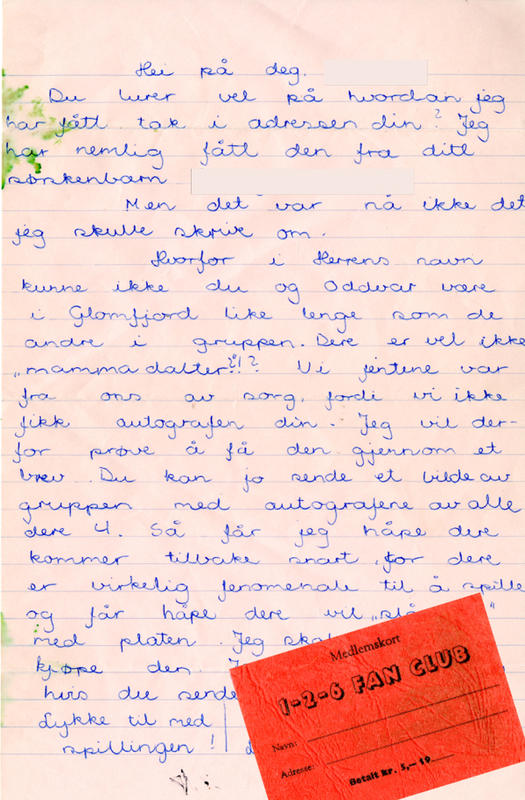 Hei på deg.
Du lurer vel på hvordan jeg
har fått tak i adressen din? Jeg
har nemlig fått den fra ditt
søskenbarn
Men det var nå ikke det
jeg skulle skrive om.
Hvorfor i Herrens navn
kunne ikke du og Oddvar være
i Glomfjord like lenge som de
andre i gruppen. Dere er vel ikke
"mamma dalter"?!? Vi jentene var
fra oss av sorg, fordi vi ikke
fikk autografen din. Jeg vil der-
for prøve å få den gjennom et
brev. Du kan jo sende et bilde av
gruppen med autografene av alle
dere 4. Så får jeg håpe dere
kommer tilbake snart, for dere
er virkelig fenomenale til å spille
og får håpe dere vil "slå"
med platen. Jeg skal
kjøpe den.
hvis du sende
Lykke til med
spillingen!
Medlemskort
1-2-6 FAN CLUB
Navn:
Adresse:
Betalt kr. 5,- 19